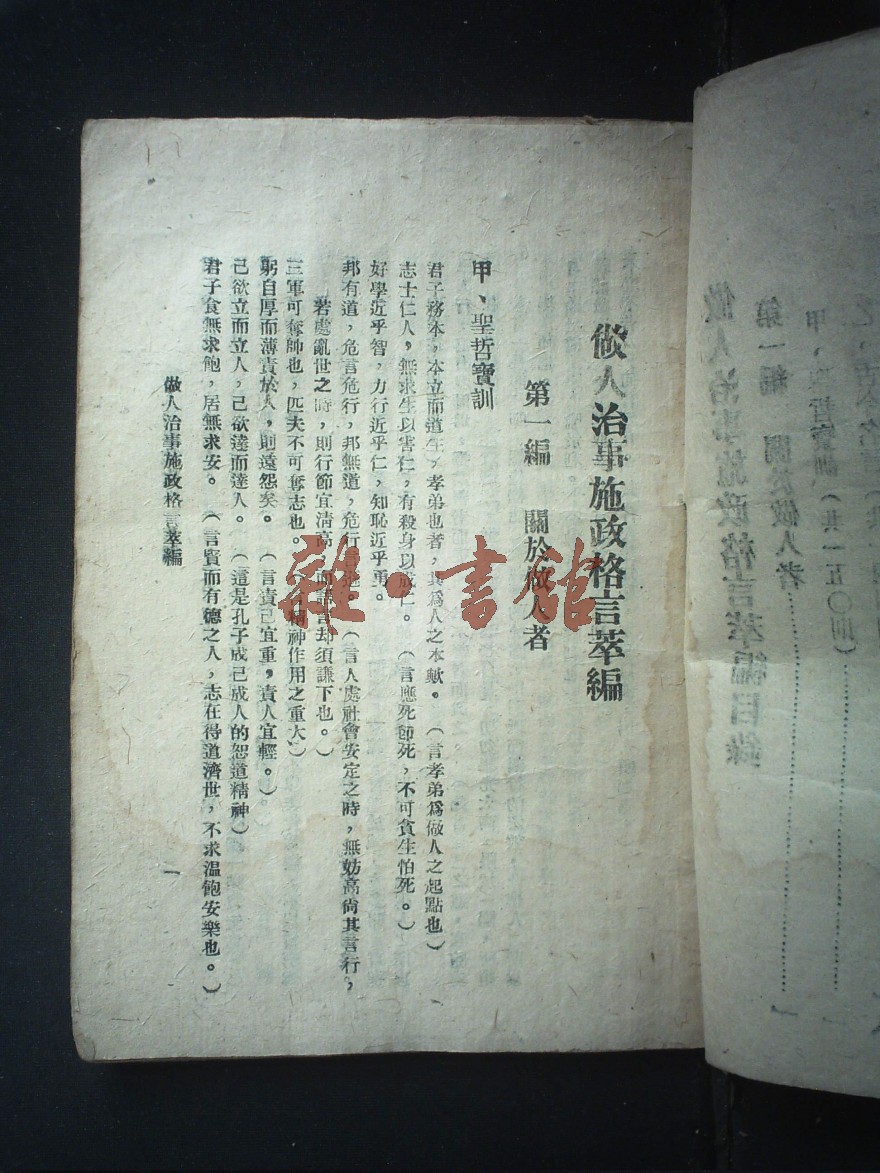 做人治事施政格言萃編
第一編　關於做人者
甲、聖哲寶訓
君子務本，本立而道生，孝弟也者，其爲人之本歟。（言孝弟爲做人之起點也）
志士仁人，無求生以害仁，有殺身以成仁。（言應死卽死，不可貪生怕死。）
好學近乎智，力行近乎仁，知恥近乎勇。
邦有道，危言危行，邦無道，危行言遜。（言人處社會安定之時，無妨高尙其言行，
若處亂世之時，則行節宜淸高，而語言却須謙下也。）
三軍可奪帥也，匹夫不可奪志也。（言精神作用之重大）
躬自厚而薄責於人，則遠怨矣。（言責己宜重，責人宜輕。）
己欲立而立人，己欲達而達人。（這是孔子成己成人的恕道精神）
君子食無求飽，居無求安。（言賢而有德之人，志在得道濟世，不求溫飽安樂也。）
做人治事施政格言萃編
一
雜·書館
做人治事施政格言萃編目錄
第一編　關於做人者
甲、聖哲寶訓（共一五〇則）